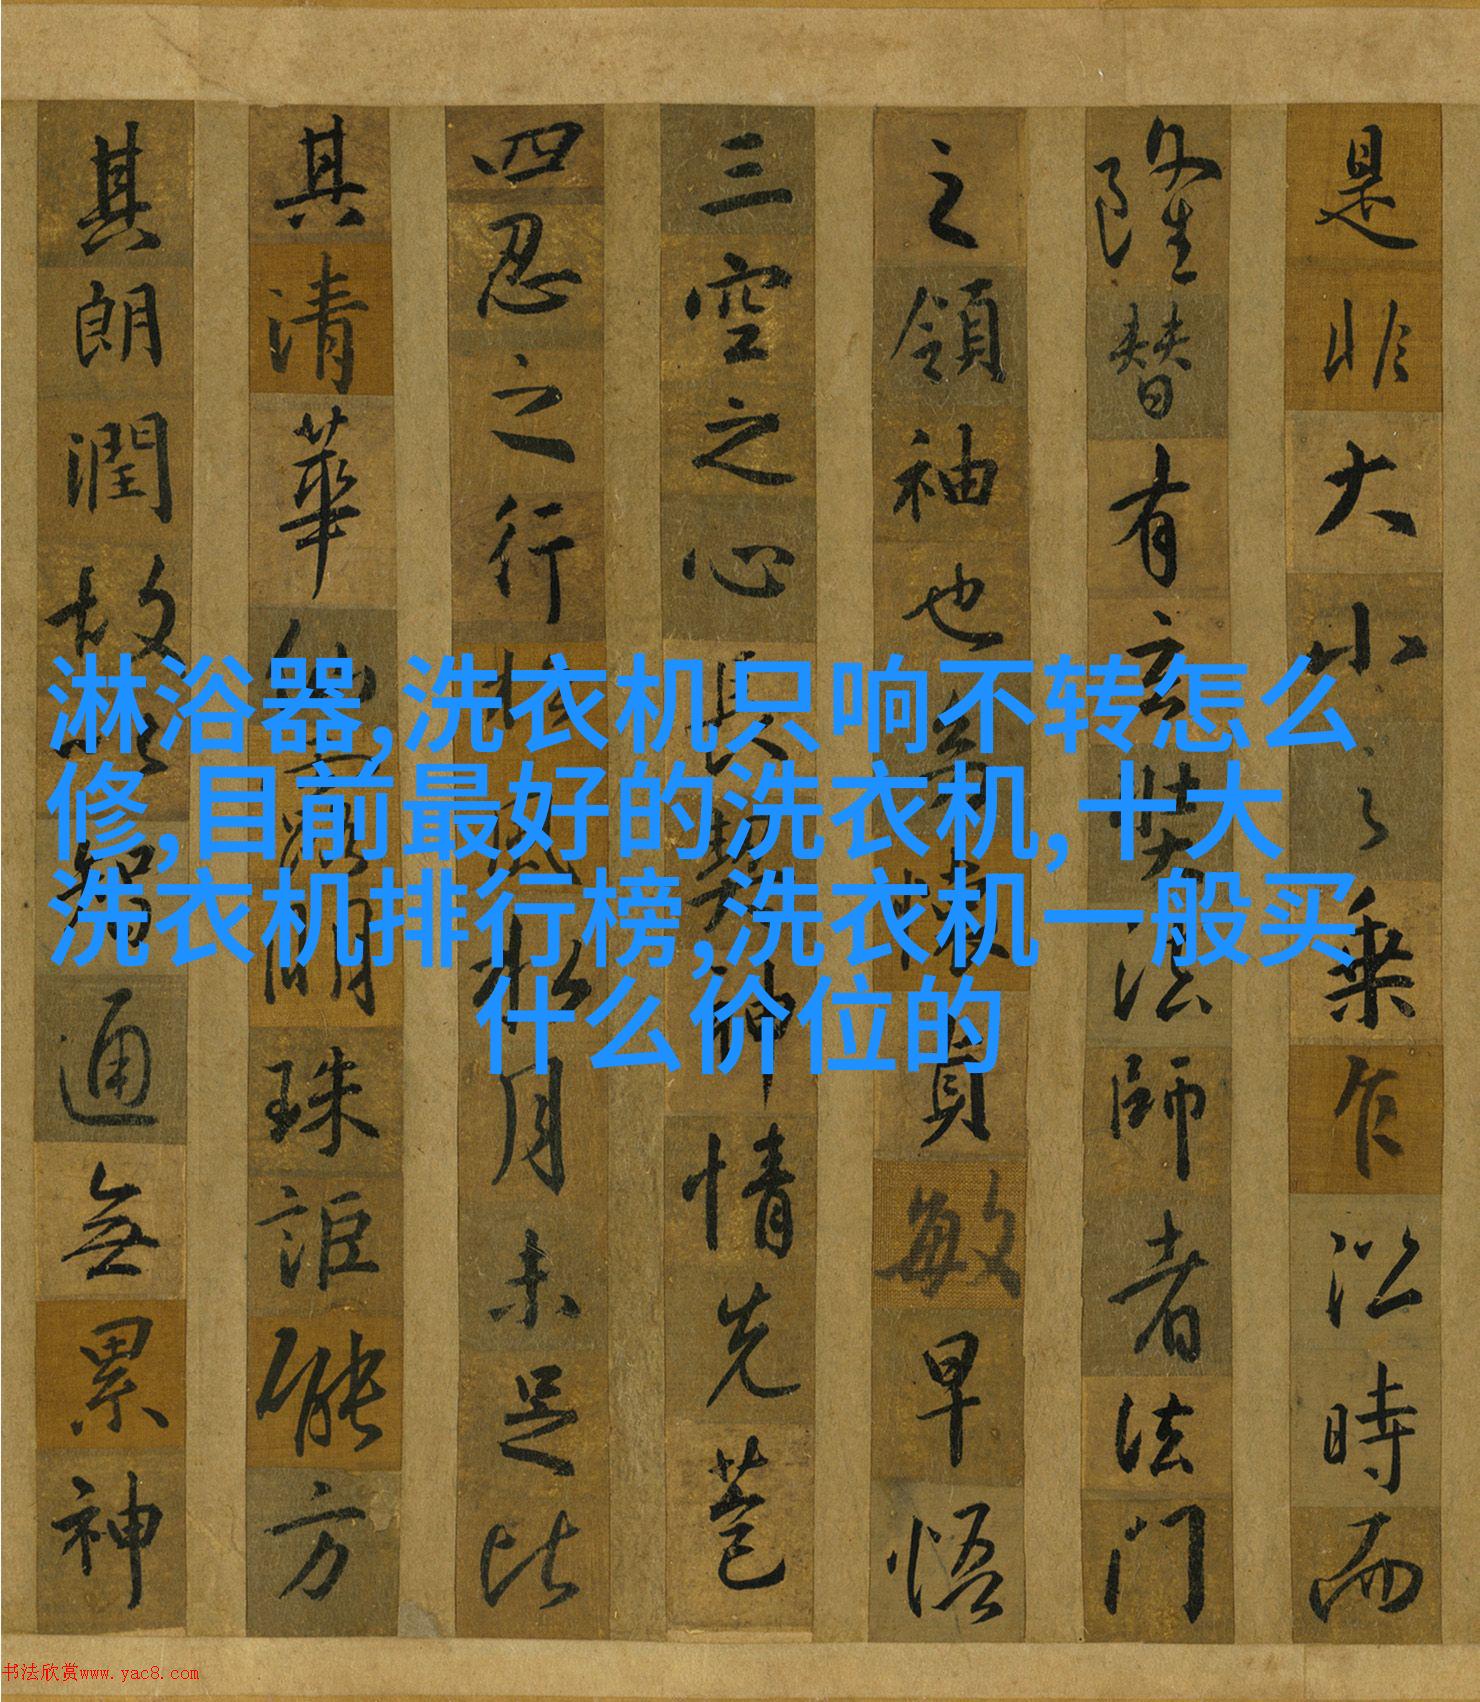 是非大小之乘乍沿時而
隆替有玄奘法師者法門
之領袖也幼懷貞敏早悟
三空之心長契神情先苞
四忍之行松風水月未足比
其清華仙露明珠詎能方
其朗潤故以智通無累神
淋浴器,洗衣机只响不转怎么
修,目前最好的洗衣机,十大
洗衣机排行榜,洗衣机一般买
什么价位的
书法欣赏www.yac8.com